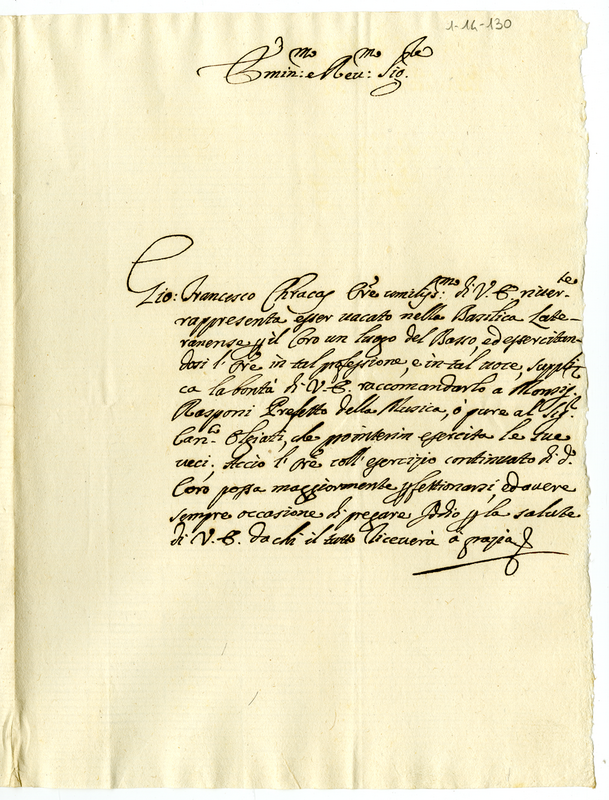 1-14-130
Emin:mo e Reu:mo Sig.re
Gio: Francesco Chracas Ore umiliss:mo di V.E. riuer.te
rappresenta esser uacato nella Basilica Late-
ranense p il Coro un luogo del Basso, ed esercitan-
dosi l'Ore in tal professione, e in tal uoce, suppli-
ca la bontà di V.E. raccomandarlo a Monsig.
Rasponi Prefetto della Musica, ò pure al Sig.r
Can.co Olgiati, che p interim esercita le sue
ueci, acciò l'Ore coll'esercizio continuato di d.o
Coro possa maggiormente pfettionarsi, ed auere
sempre occasione di pregare Iddio p la salute
di V.E. da chi il tutto riceuerà à grazia